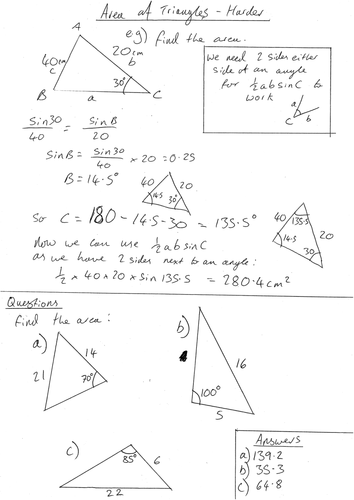 Area of Triangles - Harder
eg) find the area.
A
40cm
c
20cm
b
30°
B
a
C
We need 2 sides either
side of an angle
for ½absinC to
work
a
C
b
Sin30/40 = SinB/20
SinB = Sin30/40 × 20 = 0.25
B = 14.5°
40
20
14.5
30°
So C = 180 - 14.5 - 30 = 135.5°
Now we can use ½absinC
as we have 2 sides next to an angle:
½ × 40 × 20 × sin 135.5 = 280.4cm²
40
135.5
20
14.5
30
Questions
Find the area:
a)
14
21
70°
b)
16
100°
5
c)
85°
6
22
Answers
a) 139.2
b) 35.3
c) 64.8